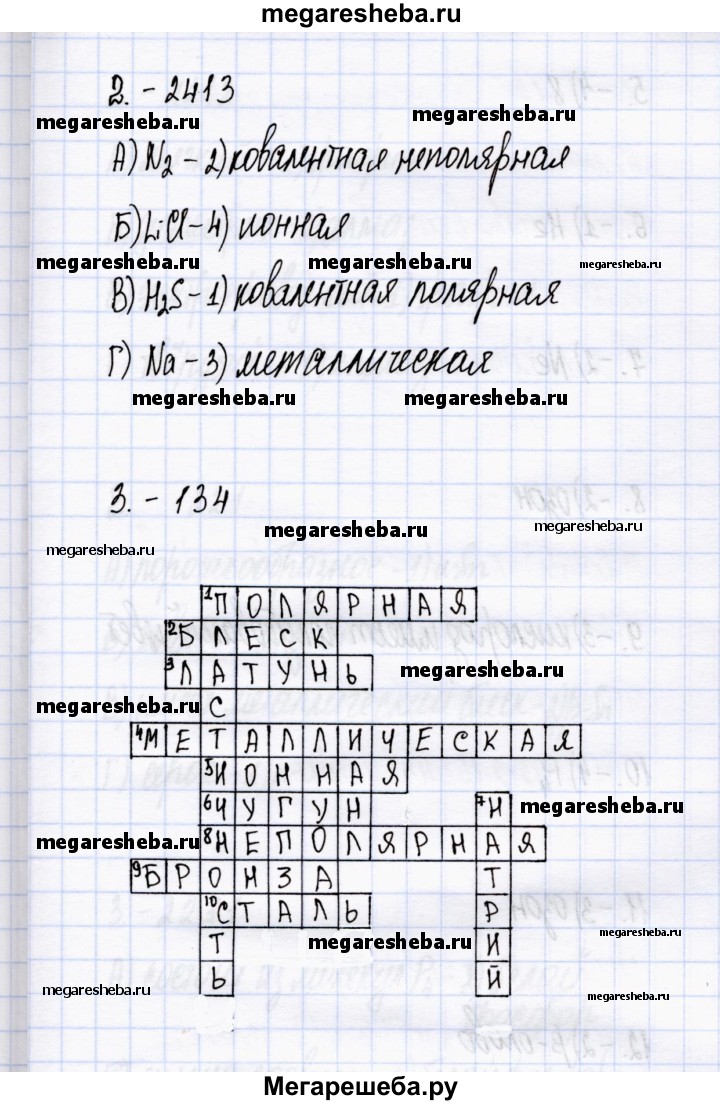 megaresheba.ru
2. - 2413
megaresheba.ru
megaresheba.ru
А) N₂ - 2) ковалентная неполярная
Б) LiCl - 4) ионная
megaresheba.ru megaresheba.ru megaresheba.ru
В) H₂S - 1) ковалентная полярная
Г) Na - 3) металлическая
megaresheba.ru megaresheba.ru
3. - 134
megaresheba.ru megaresheba.ru
megaresheba.ru
1 ПОЛЯРНАЯ
2 БЛЕСК
3 ЛАТУНЬ
megaresheba.ru
megaresheba.ru
С
4 МЕТАЛЛИЧЕСКАЯ
5 ИОННАЯ
6 ЧУГУН 7 Н
megaresheba.ru
megaresheba.ru
8 НЕПОЛЯРНАЯ
9 БРОНЗА Т
10 СТАЛЬ Р
megaresheba.ru
Т И
megaresheba.ru
Ь Й
megaresheba.ru
megaresheba.ru
Мегарешеба.ру